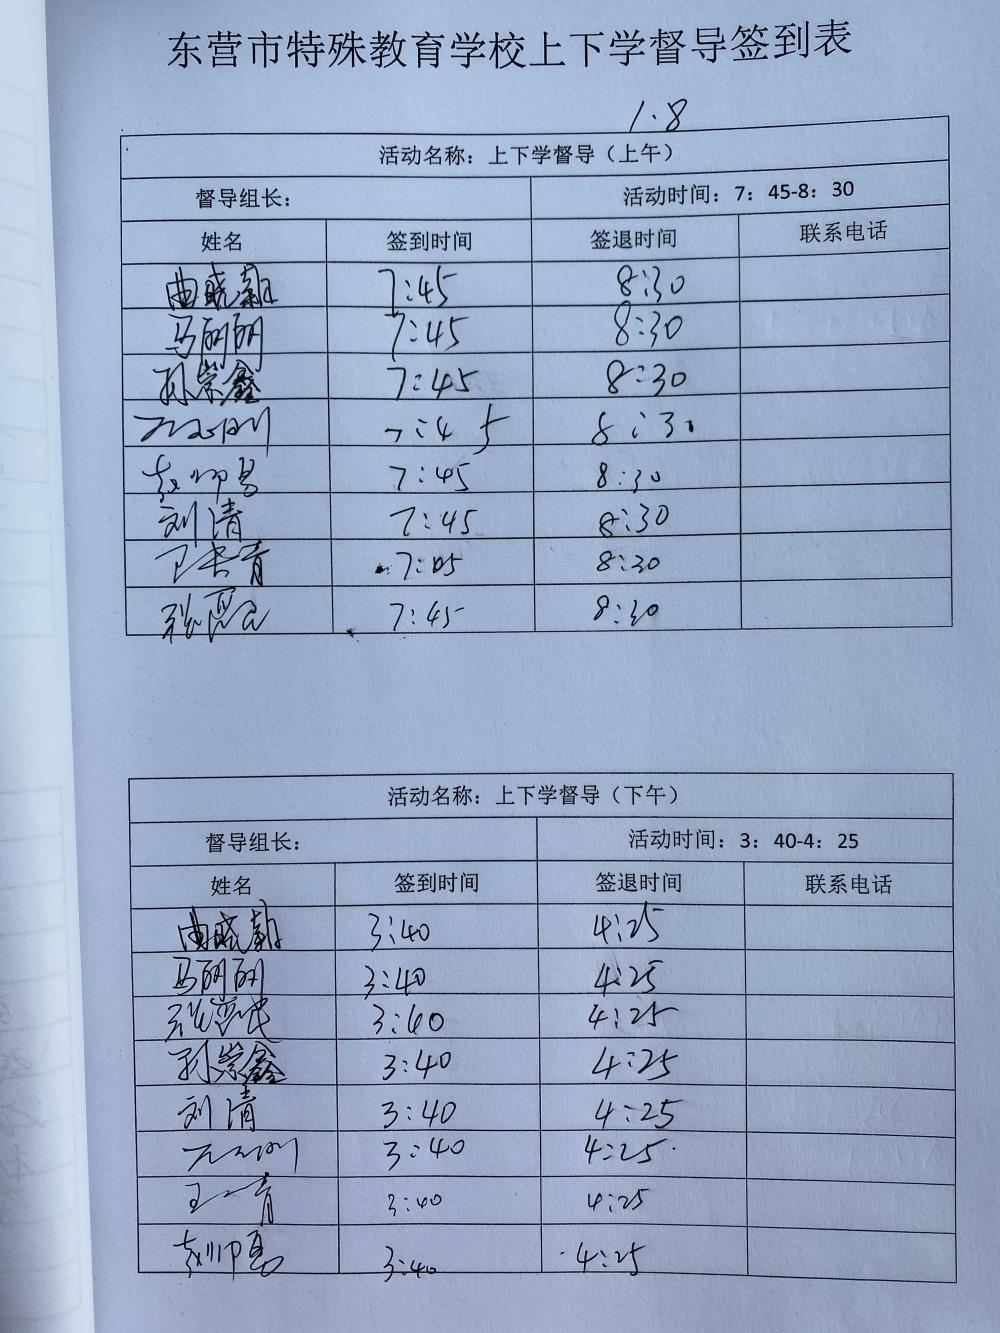 东营市特殊教育学校上下学督导签到表
1.8
活动名称：上下学督导（上午）
督导组长： 活动时间：7：45-8：30
姓名 签到时间 签退时间 联系电话
曲晓 7:45 8:30
马丽丽 7:45 8:30
孙崇鑫 7:45 8:30
7:45 8:30
7:45 8:30
刘清 7:45 8:30
青 8:30
张 7:45 8:30
活动名称：上下学督导（下午）
督导组长： 活动时间：3：40-4：25
姓名 签到时间 签退时间 联系电话
曲晓 3:40 4:25
马丽丽 3:40 4:25
张 3:40 4:25
孙崇鑫 3:40 4:25
刘清 3:40 4:25
3:40 4:25
王 青 3:40 4:25
3:40 4:25